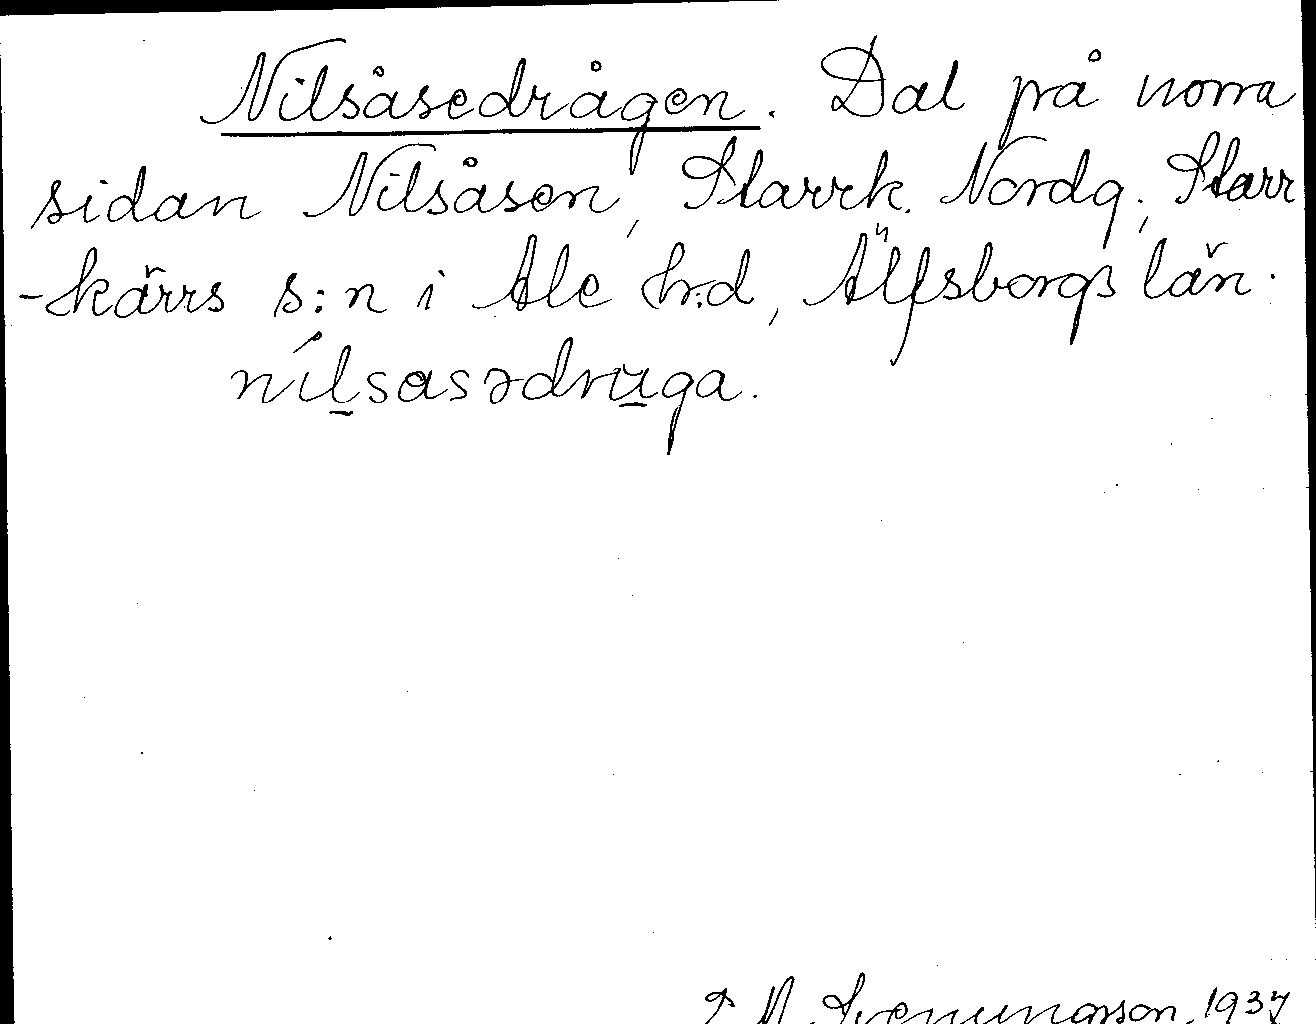 Nilsåsedrågen. Dal på norra
sidan Nilsåsen, Starrk. Nordg., Starr
-kärrs s:n i Ale h:d, Älfsborgs län.
nílsasədruga.
Svenungsson. 1937